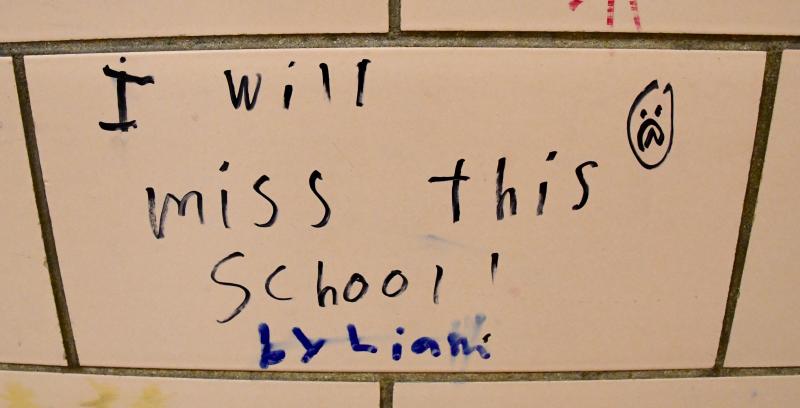 I will
miss this
School!
by Liam